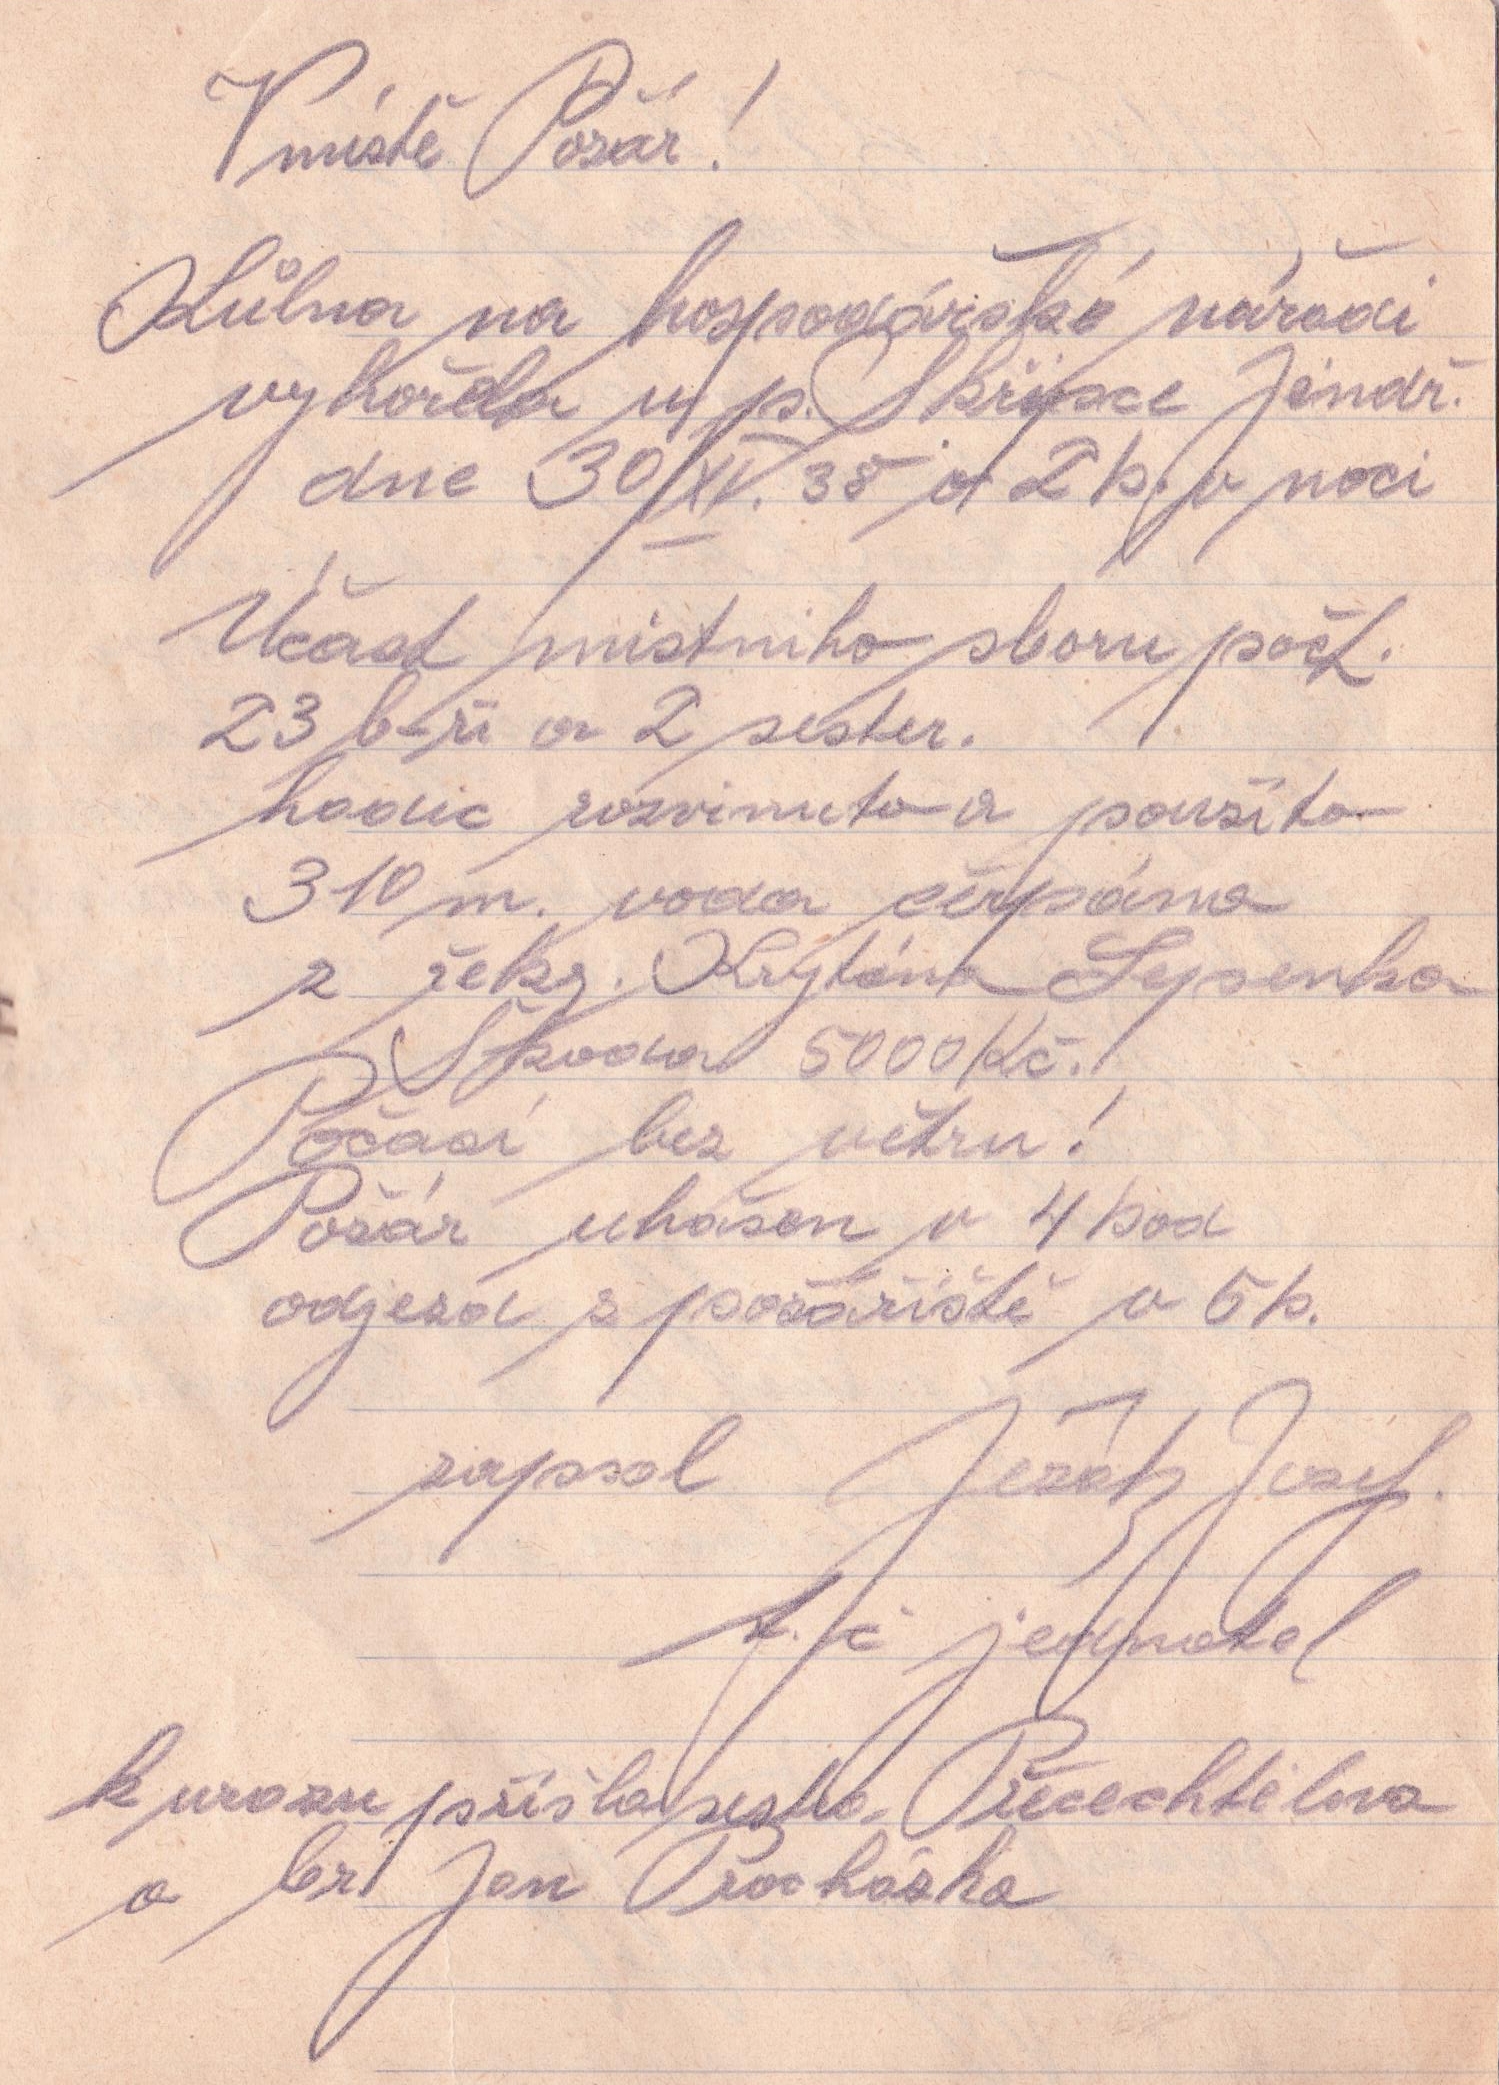 V místě Požár!
Kůlna na hospodářské nářadi
vyhořela u p. Skřipce Jindř.
dne 30/XI. 38 o 2 h. v noci
Účast mistniho sboru poči.
23 b-ří a 2 sester.
hadic rozvinuto a použito
310 m. voda čerpána
z řeky. Krytina Lepenka
Škoda 5000 Kč.
Počasí bez větru!
Požár uhašen v 4 hod
odjezd z požářiště v 5 h.
zapsal Ježák Josef.
t. č jednatel
k urazu přišla sestra. Přecechtělova
a br. Jan Procházka